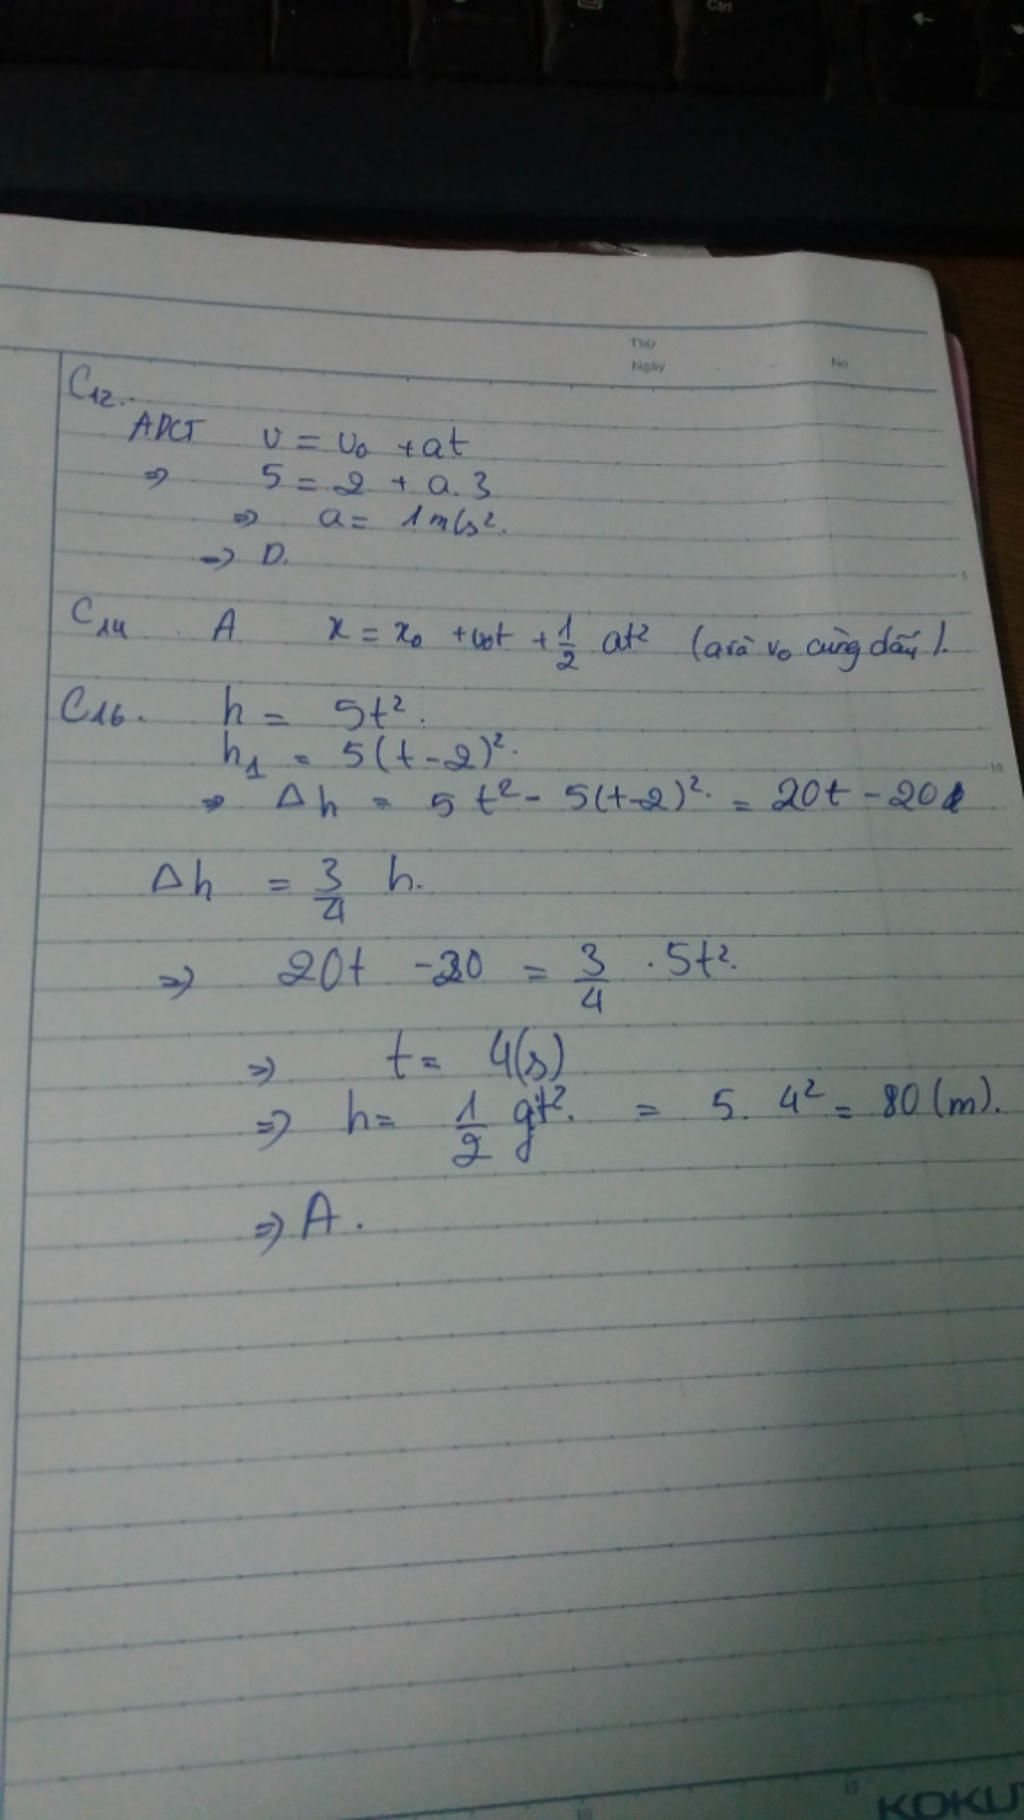 Ctrl
Thứ
Ngày No
C12.
ADCT v = v₀ + at
⇒ 5 = 2 + a.3
⇒ a = 1m/s².
→ D.
5
C14 . A x = x₀ + v₀t + 1/2 at² (a và v₀ cùng dấu).
C16. h = 5t².
h₁ = 5(t-2)².
10
⇒ Δh = 5t² - 5(t-2)². = 20t - 20
Δh = 3/4 h.
⇒ 20t - 20 = 3/4 . 5t².
⇒ t = 4(s)
⇒ h = 1/2 gt². = 5. 4² = 80 (m).
⇒ A.
10 15